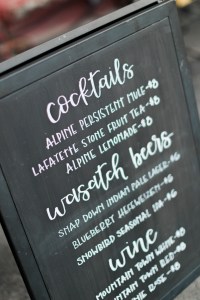 cocktails
ALPINE PERSISTENT MULE-$8
LAFAYETTE STONE FRUIT TEA-$8
ALPINE LEMONADE-$8
wasatch beers
SNAP DOWN INDIAN PALE LAGER-$6
BLUEBERRY HEFEWEIZEN-$6
SNOWBIRD SEASONAL IPA-$6
wine
MOUNTAIN TOWN WHITE-$8
MOUNTAIN TOWN RED-$8
ROSE-$8